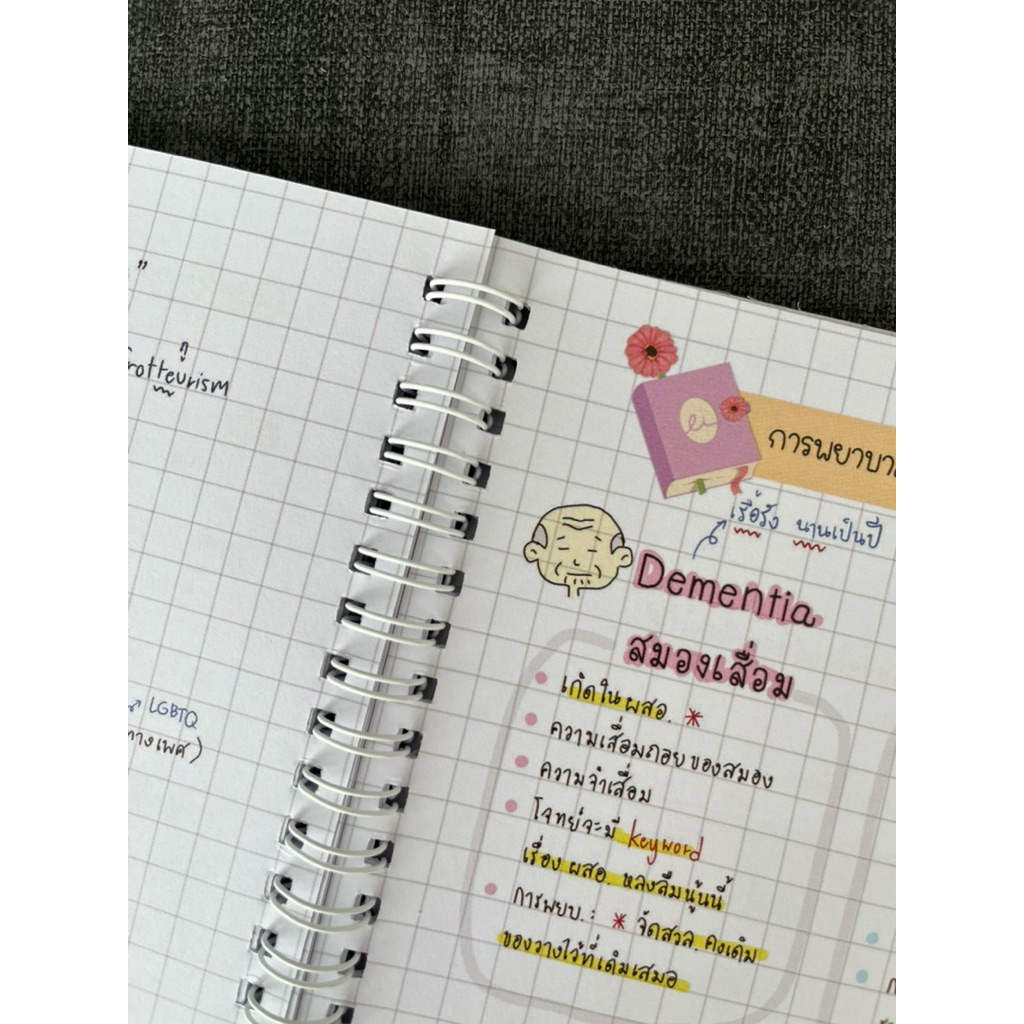 ถู
LGBTQ
ทางเพศ)
การพยาบา
เรื้อรัง นานเป็นปี
Dementia
สมองเสื่อม
เกิดใน ผสอ. *
ความเสื่อมถอยของสมอง
ความจำเสื่อม
โจทย์จะมี keyword
เรื่อง ผสอ. หลงลืมนู่นนี้
การพยบ. : * จัดสวล. คงเดิม
ของวางไว้ที่เดิมเสมอ